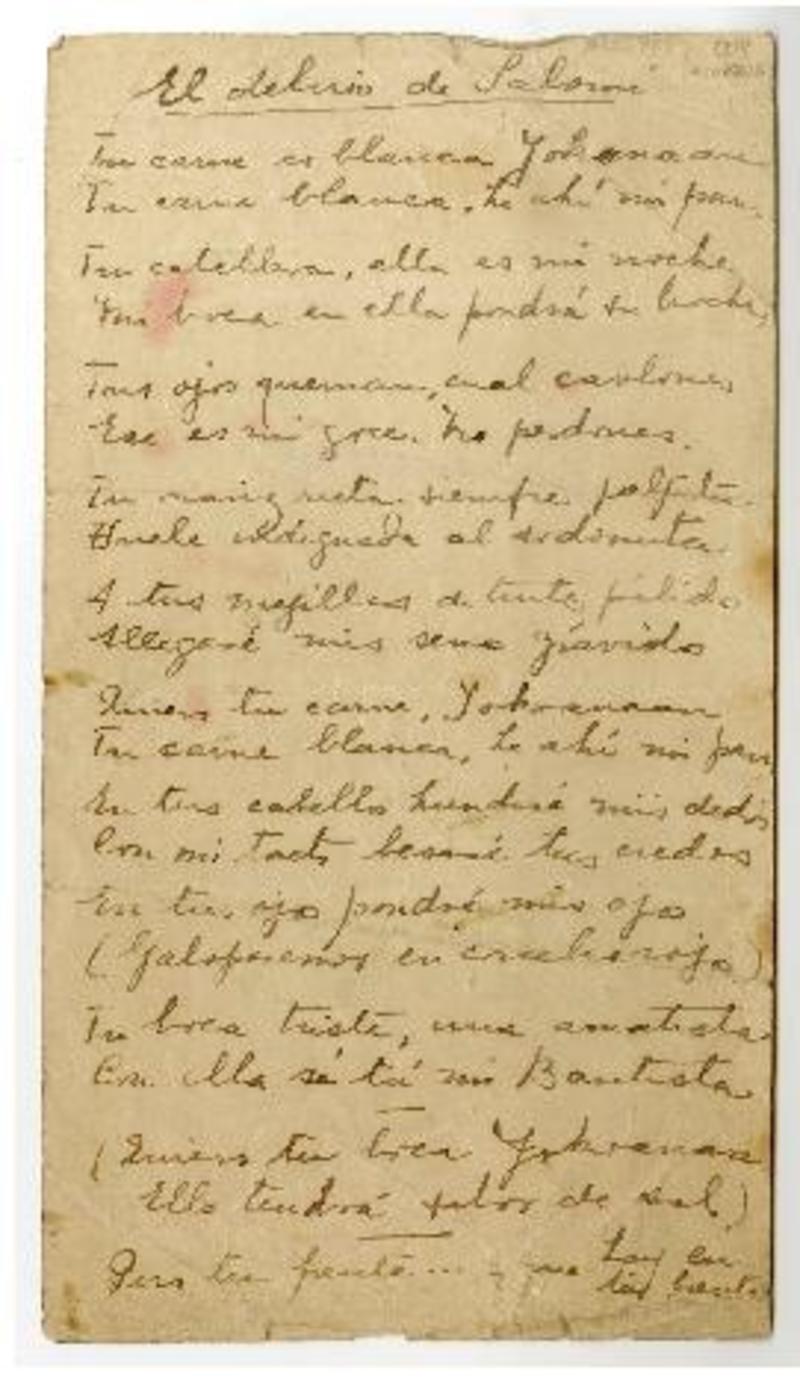 El delirio de Salomé
Tu carne es blanca Yokanaan
Tu carne blanca, he ahí mi pan.
Tu cabellera, ella es mi noche
Tu boca en ella pondrá su broche,
Tus ojos queman, cual carbones
Ese es mi goce. No perdones.
Tu nariz recta siempre palpita
Huele indignada al sodomita.
A tus mejillas de tinte pálido
Allegaré mis senos grávidos
Quiero tu carne, Yokanaan
Tu carne blanca, he ahí mi pan,
En tus cabellos hundiré mis dedos
Con mi tacto besaré tus credos
En tus ojos pondré mis ojos
(Galoparemos en rojos)
Tu boca triste, una amatista
Con ella sé tú mi Bautista
(Quiero tu boca Yokanaan
Ella tendrá sabor de sal)
Pero tu frente... y que hay en
tu frente